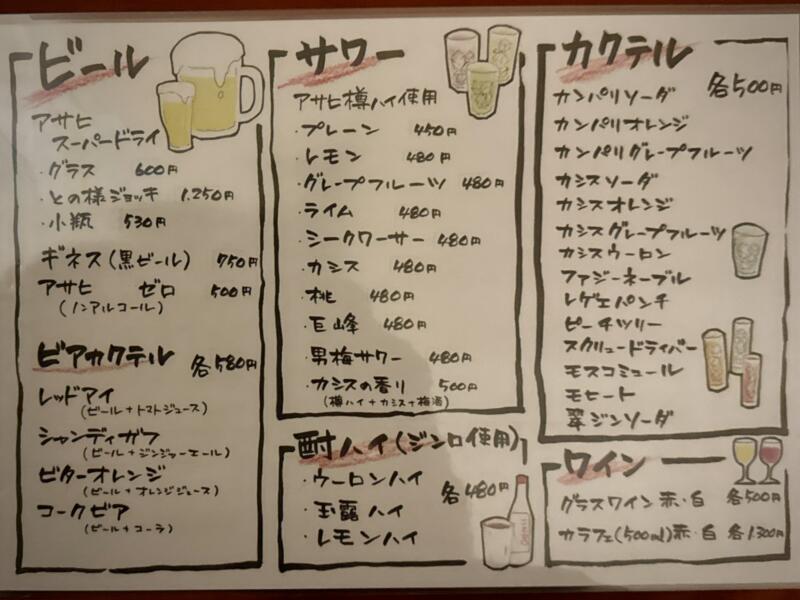 ビール
アサヒ
スーパードライ
・グラス 600円
・との様ジョッキ 1.250円
・小瓶 530円
ギネス(黒ビール) 750円
アサヒ ゼロ 500円
(ノンアルコール)
ビアカクテル 各580円
レッドアイ
(ビール+トマトジュース)
シャンディガフ
(ビール+ジンジャーエール)
ビターオレンジ
(ビール+オレンジジュース)
コークビア
(ビール+コーラ)
サワー
アサヒ樽ハイ使用
・プレーン 450円
・レモン 480円
・グレープフルーツ 480円
・ライム 480円
・シークワーサー 480円
・カシス 480円
・桃 480円
・巨峰 480円
・男梅サワー 480円
・カシスの香り 500円
(樽ハイ+カシス+梅酒)
酎ハイ(ジンロ使用)
・ウーロンハイ
・玉露ハイ
・レモンハイ
各480円
カクテル
各500円
カンパリソーダ
カンパリオレンジ
カンパリグレープフルーツ
カシスソーダ
カシスオレンジ
カシスグレープフルーツ
カシスウーロン
ファジーネーブル
レゲエパンチ
ピーチツリー
スクリュードライバー
モスコミュール
モヒート
翠ジンソーダ
ワイン
グラスワイン 赤・白 各500円
カラフェ(500ml)赤・白 各1.300円